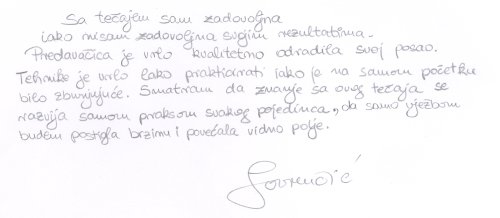 Sa tečajem sam zadovoljna
iako nisam zadovoljna svojim rezultatima.
Predavačica je vrlo kvalitetno odradila svoj posao.
Tehnike je vrlo lako prakticirati iako je na samom početku
bilo zbunjujuće. Smatram da znanje sa ovog tečaja se
razvija samom praksom svakog pojedinca, da samo vježbom
budem postigla brzinu i povećala vidno polje.
Lovrenčić